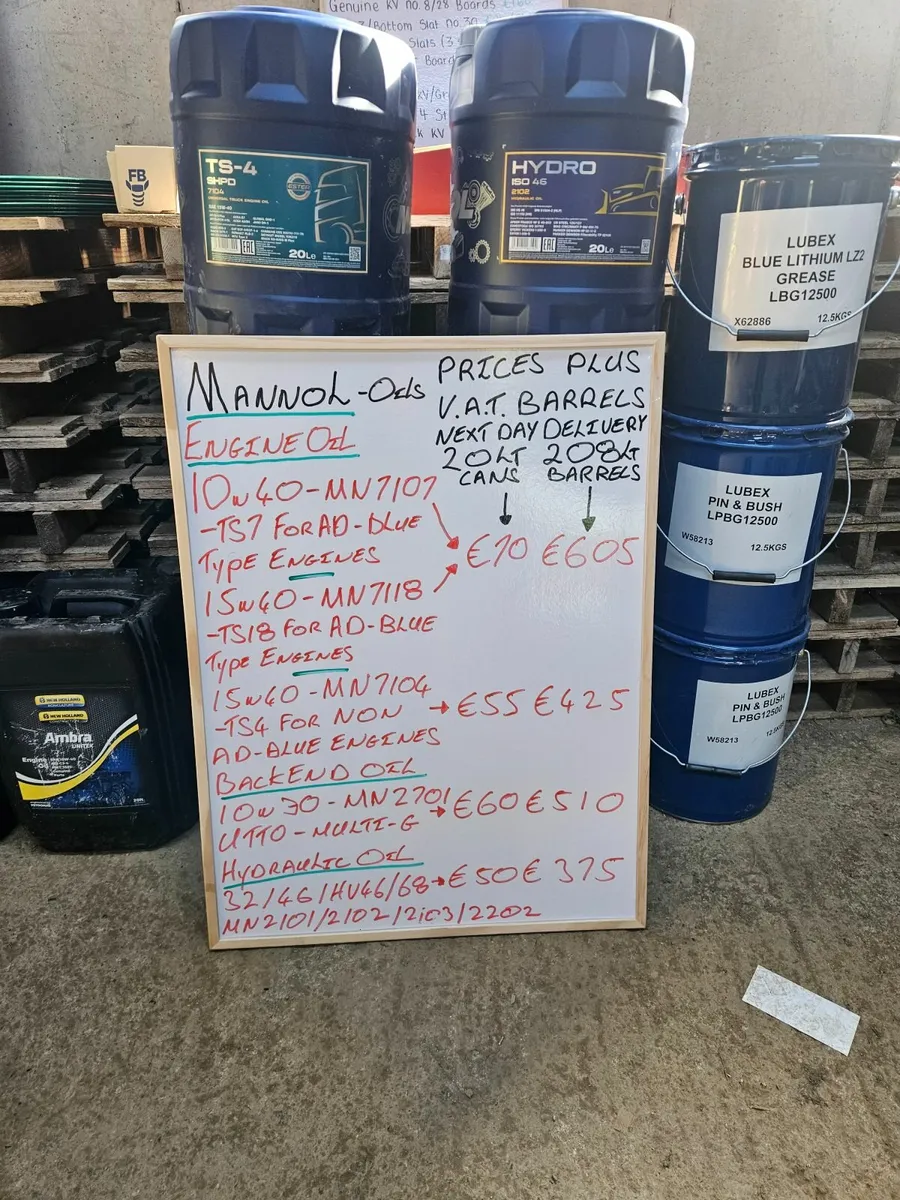 Genuine KV no. 8/28 Boards
/Bottom Slat no. 30
Slats (3
Board
4 St
KV
FB
TS-4
SHPD
7104
UNIVERSAL TRUCK ENGINE OIL
SAE 15W-40
ESTER
20Le
HYDRO
ISO 46
2102
HYDRAULIC OIL
20Le
LUBEX
BLUE LITHIUM LZ2
GREASE
LBG12500
X62886 12.5KGS
LUBEX
PIN & BUSH
LPBG12500
W58213 12.5KGS
LUBEX
PIN & BUSH
LPBG12500
W58213 12.5KGS
NEW HOLLAND
NEW HOLLAND
Ambra
UNITEK
Engine Oil
MANNOL-OILS
PRICES PLUS
V.A.T. BARRELS
NEXT DAY DELIVERY
20LT 208LT
CANS BARRELS
ENGINE OIL
10W40-MN7107
-TS7 FOR AD-BLUE
TYPE ENGINES
€70 €605
15W40-MN7118
-TS18 FOR AD-BLUE
TYPE ENGINES
15W40-MN7104
-TS4 FOR NON
AD-BLUE ENGINES
€55 €425
BACKEND OIL
10W30-MN2701
UTTO-MULTI-G
€60 €510
HYDRAULIC OIL
32/46/HV46/68 €50 €375
MN2101/2102/2103/2202